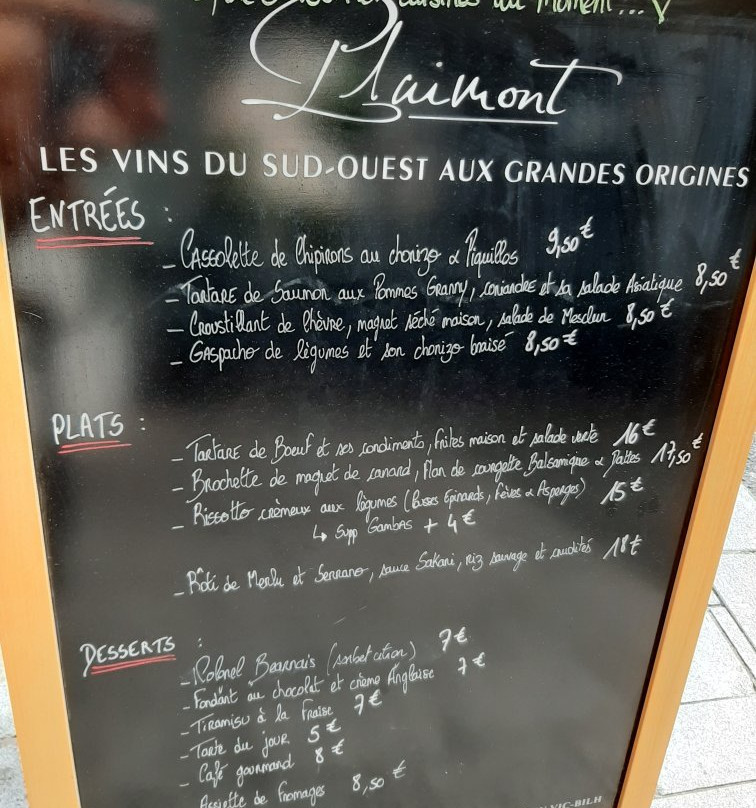 cuisinés du moment...
Plaimont
LES VINS DU SUD-OUEST AUX GRANDES ORIGINES
ENTRÉES :
- Cassolette de Chipirons au chorizo & Piquillos 9,50€
- Tartare de Saumon aux Pommes Granny, coriandre et sa salade Asiatique 8,50€
- Croustillant de Chèvre, magret séché maison, salade de Mesclun 8,50€
- Gaspacho de légumes et son chorizo braisé 8,50€
PLATS :
- Tartare de Boeuf et ses condiments, frites maison et salade verte 16€
- Brochette de magret de canard, flan de courgette Balsamique & Pattes 17,50€
- Rissotto crèmeux aux légumes (Epinards, Fèves & Asperges) 15€
↳ Supp Gambas + 4€
- Rôti de Merlu et Serrano, sauce Sakari, riz sauvage et crudités 18€
DESSERTS :
- Colonel Bearnais (sorbet citron) 7€
- Fondant au chocolat et crème Anglaise 7€
- Tiramisu à la Fraise 7€
- Tarte du jour 5€
- Café gourmand 8€
Assiette de fromages 8,50€
VIC-BILH